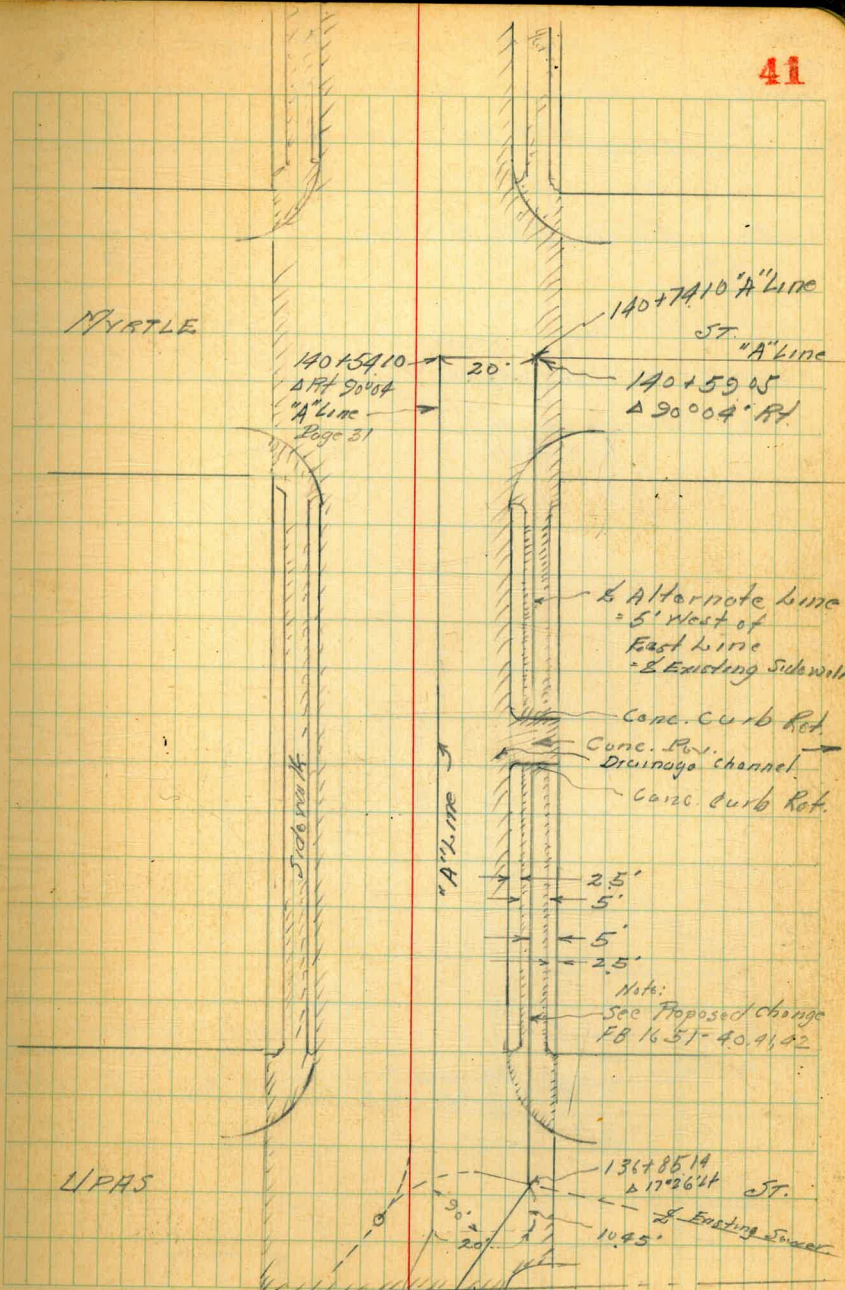 41
MYRTLE
140+74.10 "A" Line
ST.
"A" Line
140+54.10
Δ Rt 90°04'
"A" Line
Page 31
20'
140+59.05
Δ 90°04' Rt
℄ Alternate Line
= 5' West of
East Line
= ℄ Existing Sidewalk
Conc. Curb Ret.
Conc. Pav.
Drainage Channel
Conc. Curb Ret.
Sidewalk
"A" Line
2.5'
5'
5'
2.5'
Note:
See Proposed change
FB 1651-40,41,42
UPAS
136+85.14
Δ 17°26' Lt
ST.
℄ Existing Sewer
90°
20'
10.45'